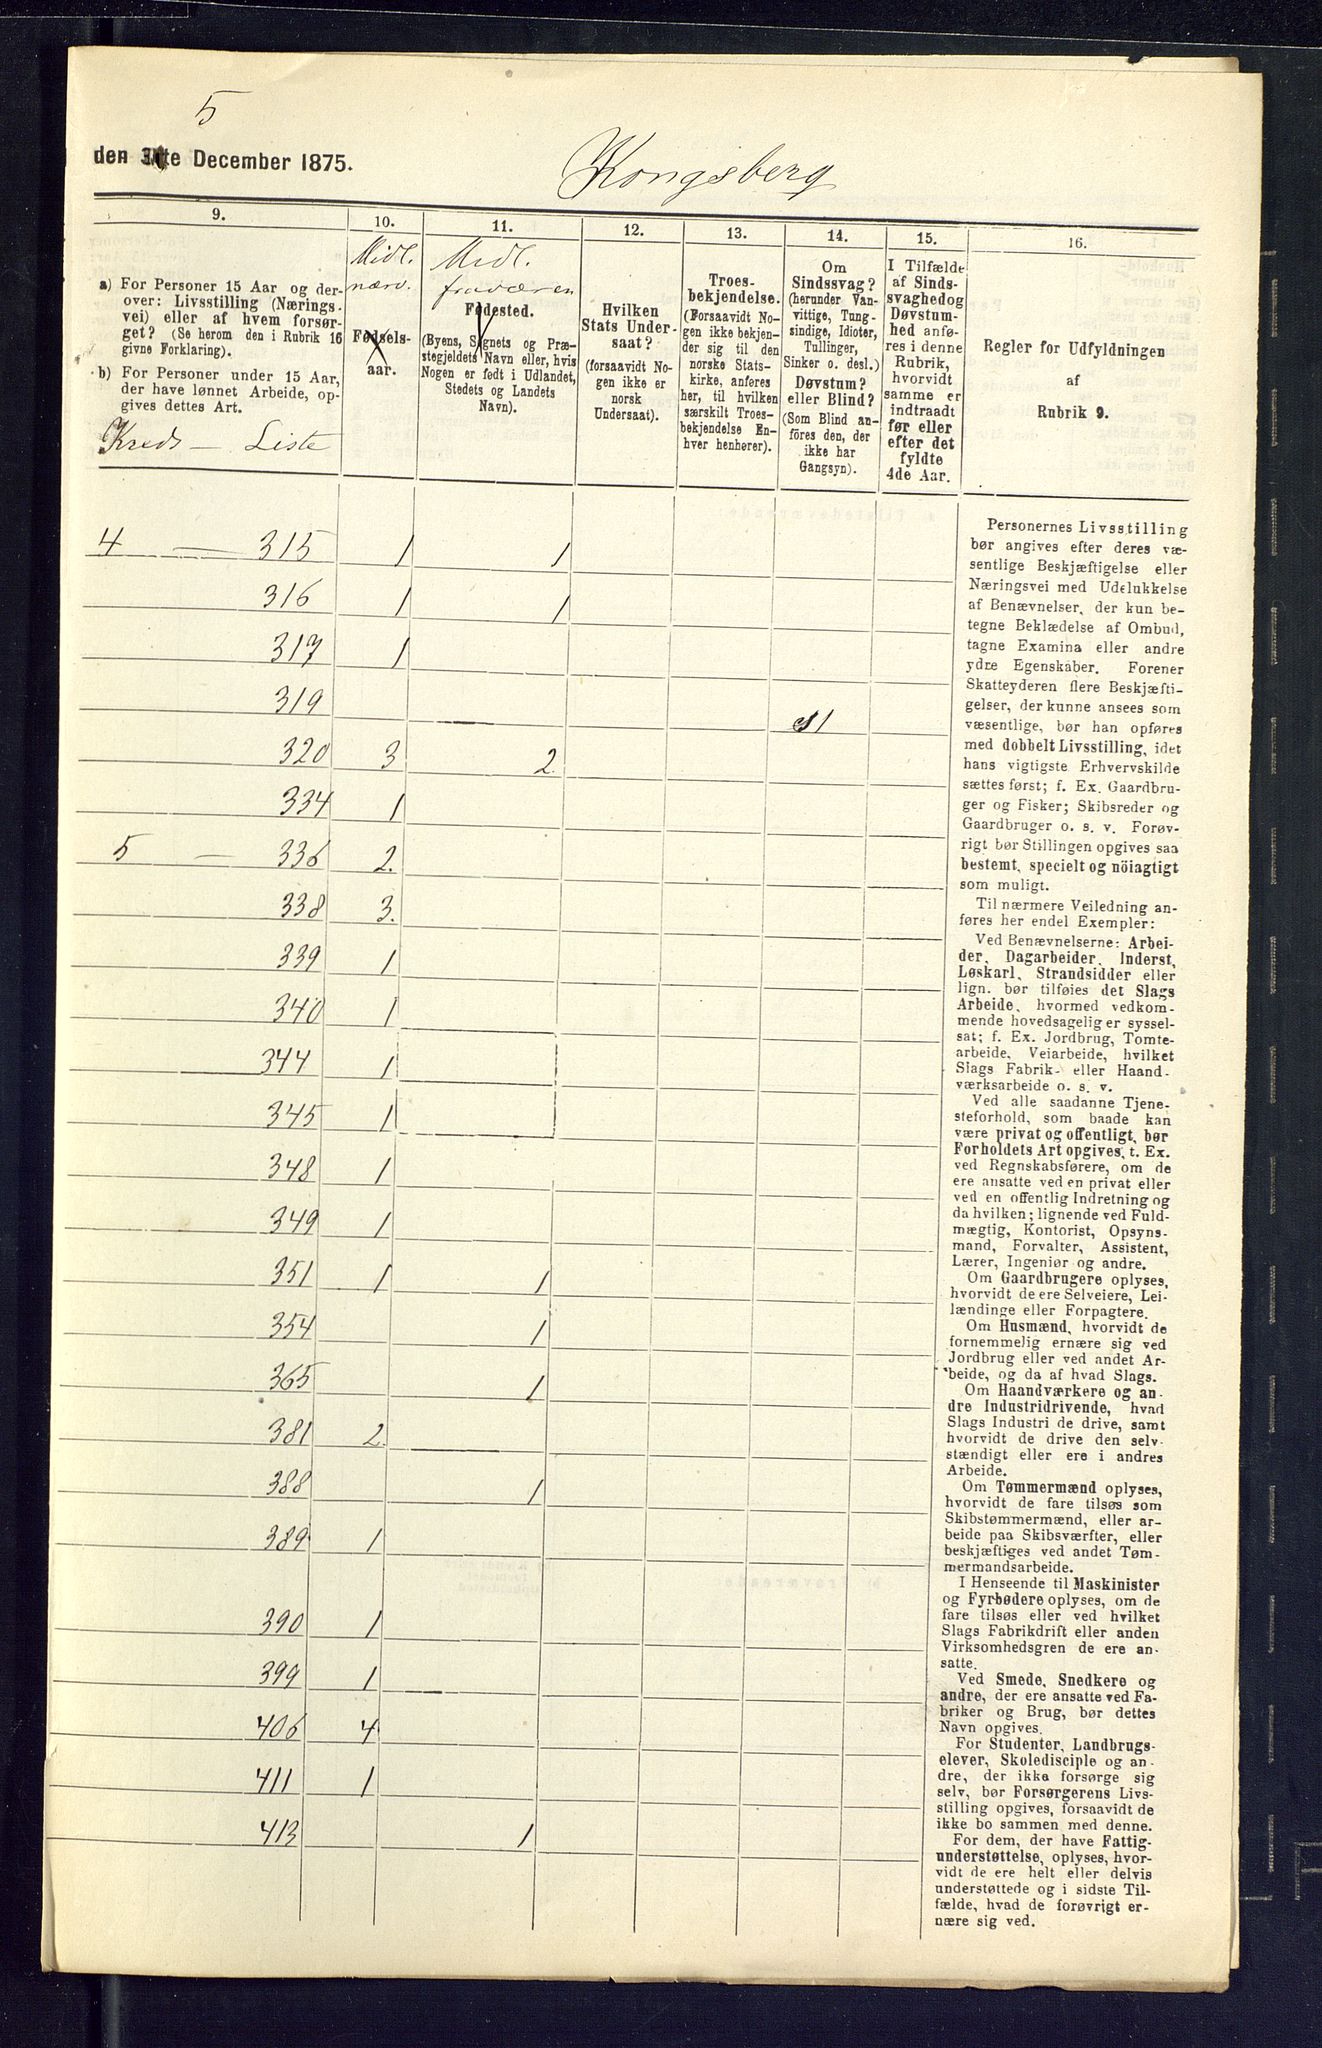 5
den 31te December 1875.
Kongsberg
9.
10.
11.
12.
13.
14.
15.
16.
a) For Personer 15 Aar og der-
over: Livsstilling (Nærings-
vei) eller af hvem forsør-
get? (Se herom den i Rubrik 16
givne Forklaring).
b) For Personer under 15 Aar,
der have lønnet Arbeide, op-
gives dettes Art.
Kreds — Liste
Midl.
nærv.
Fødsels-
aar.
Midl.
fraværen
Fødested.
(Byens, Sognets og Præ-
stegjeldets Navn eller, hvis
Nogen er født i Udlandet,
Stedets og Landets
Navn).
Hvilken
Stats Under-
saat?
(forsaavidt No-
gen ikke er
norsk
Undersaat).
Troes-
bekjendelse.
(Forsaavidt No-
gen ikke bekjen-
der sig til den
norske Stats-
kirke, anføres
her, til hvilken
særskilt Troes-
bekjendelse En-
hver henhører).
Om
Sindssvag?
(herunder Van-
vittige, Tung-
sindige, Idioter,
Tullinger,
Sinker o. desl.)
Døvstum?
eller Blind?
(Som Blind an-
føres den, der
ikke har
Gangsyn).
I Tilfælde
af Sinds-
svaghedog
Døvstum-
hed anfø-
res i denne
Rubrik,
hvorvidt
samme er
indtraadt
før eller
efter det
fyldte
4de Aar.
Regler for Udfyldningen
af
Rubrik 9.
4 — 315 1 1
316 1 1
317 1
319 S 1
320 3 2
334 1
5 — 336 2.
338 3.
339 1
340 1
344 1
345 1
348 1
349 1
351 1 1
354 1
365 1
381 2
388 1
389 1
390 1
399 1
406 4
411 1
413 1
Personernes Livsstilling
bør angives efter deres væ-
sentlige Beskjæftigelse eller
Næringsvei med Udelukkelse
af Benævnelser, der kun be-
tegne Beklædelse af Ombud,
tagne Examina eller andre
ydre Egenskaber. Forener
Skatteyderen flere Beskjæfti-
gelser, der kunne ansees som
væsentlige, bør han opføres
med dobbelt Livsstilling, idet
hans vigtigste Erhvervskilde
sættes først; f. Ex. Gaardbru-
ger og Fisker; Skibsreder og
Gaardbruger o. s. v. Forøv-
rigt bør Stillingen opgives saa
bestemt, specielt og nöiagtigt
som muligt.
Til nærmere Veiledning an-
føres her endel Exempler:
Ved Benævnelserne: Arbei-
der, Dagarbeider, Inderst,
Løskarl, Strandsidder eller
lign. bør tilføies det Slags
Arbeide, hvormed vedkom-
mende hovedsagelig er syssel-
sat; f. Ex. Jordbrug, Tomte-
arbeide, Veiarbeide, hvilket
Slags Fabrik- eller Haand-
værksarbeide o. s. v.
Ved alle saadanne Tjene-
steforhold, som baade kan
være privat og offentligt, bør
Forholdets Art opgives, t. Ex.
ved Regnskabsførere, om de
ere ansatte ved en privat eller
ved en offentlig Indretning og
da hvilken; lignende ved Fuld-
mægtig, Kontorist, Opsyns-
mand, Forvalter, Assistent,
Lærer, Ingeniør og andre.
Om Gaardbrugere oplyses,
hvorvidt de ere Selveiere, Lei-
lændinge eller Forpagtere.
Om Husmænd, hvorvidt de
fornemmelig ernære sig ved
Jordbrug eller ved andet Ar-
beide, og da af hvad Slags.
Om Haandværkere og an-
dre Industridrivende, hvad
Slags Industri de drive, samt
hvorvidt de drive den selv-
stændigt eller ere i andres
Arbeide.
Om Tømmermænd oplyses,
hvorvidt de fare tilsøs som
Skibstømmermænd, eller ar-
beide paa Skibsværfter, eller
beskjæftiges ved andet Tøm-
mermandsarbeide.
I Henseende til Maskinister
og Fyrbødere oplyses, om de
fare tilsøs eller ved hvilket
Slags Fabrikdrift eller anden
Virksomhedsgren de ere an-
satte.
Ved Smede, Snedkere og
andre, der ere ansatte ved Fa-
briker og Brug, bør dettes
Navn opgives.
For Studenter, Landbrugs-
elever, Skoledisciple og an-
dre, der ikke forsørge sig
selv, bør Forsørgerens Livs-
stilling opgives, forsaavidt de
ikke bo sammen med denne.
For dem, der have Fattig-
understøttelse, oplyses, hvor-
vidt de ere helt eller delvis
understøttede og i sidste Til-
fælde, hvad de forøvrigt er-
nære sig ved.